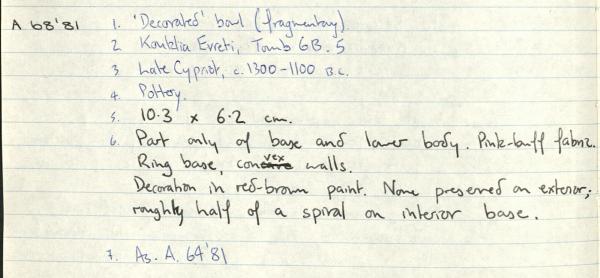 A 68'81 1. 'Decorated' bowl (fragmentary)
2 Kouklia Evreti, Tomb GB. 5
3 Late Cypriot, c. 1300-1100 B.C.
4. Pottery.
5. 10.3 x 6.2 cm.
6. Part only of base and lower body. Pink-buff fabric.
Ring base, convex walls.
Decoration in red-brown paint. None preserved on exterior;
roughly half of a spiral on interior base.
7. As. A. 64'81